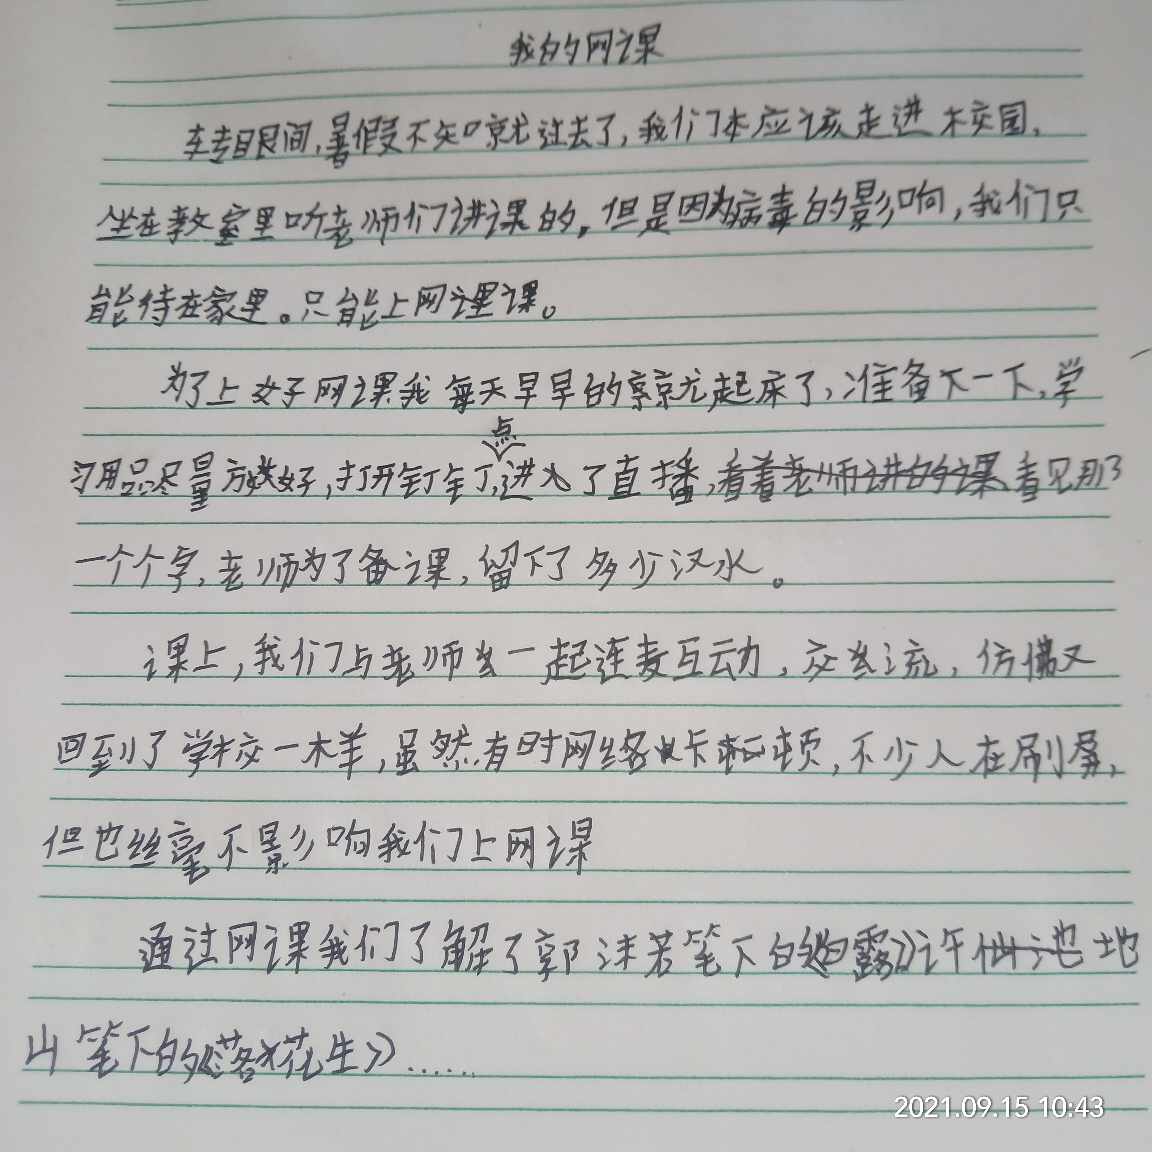 我的网课
转眼间,暑假不知就过去了,我们本应该走进校园,
坐在教室里听老师们讲课的,但是因为病毒的影响,我们只
能待在家里。只能上网课。
为了上好网课我每天早早的就起床了,准备下一下,学
点
习用品尽量放好,打开钉钉,进入了直播,看着老师讲的课看见那
一个个字,老师为了备课,留下了多少汉水。
课上,我们与老师一起连麦互动,交流,仿佛又
回到了学校一样,虽然有时网络卡顿,不少人在刷屏,
但也丝毫不影响我们上网课
通过网课我们了解了郭沫若笔下的《白露》许地
山笔下的《落花生》......
2021.09.15 10:43